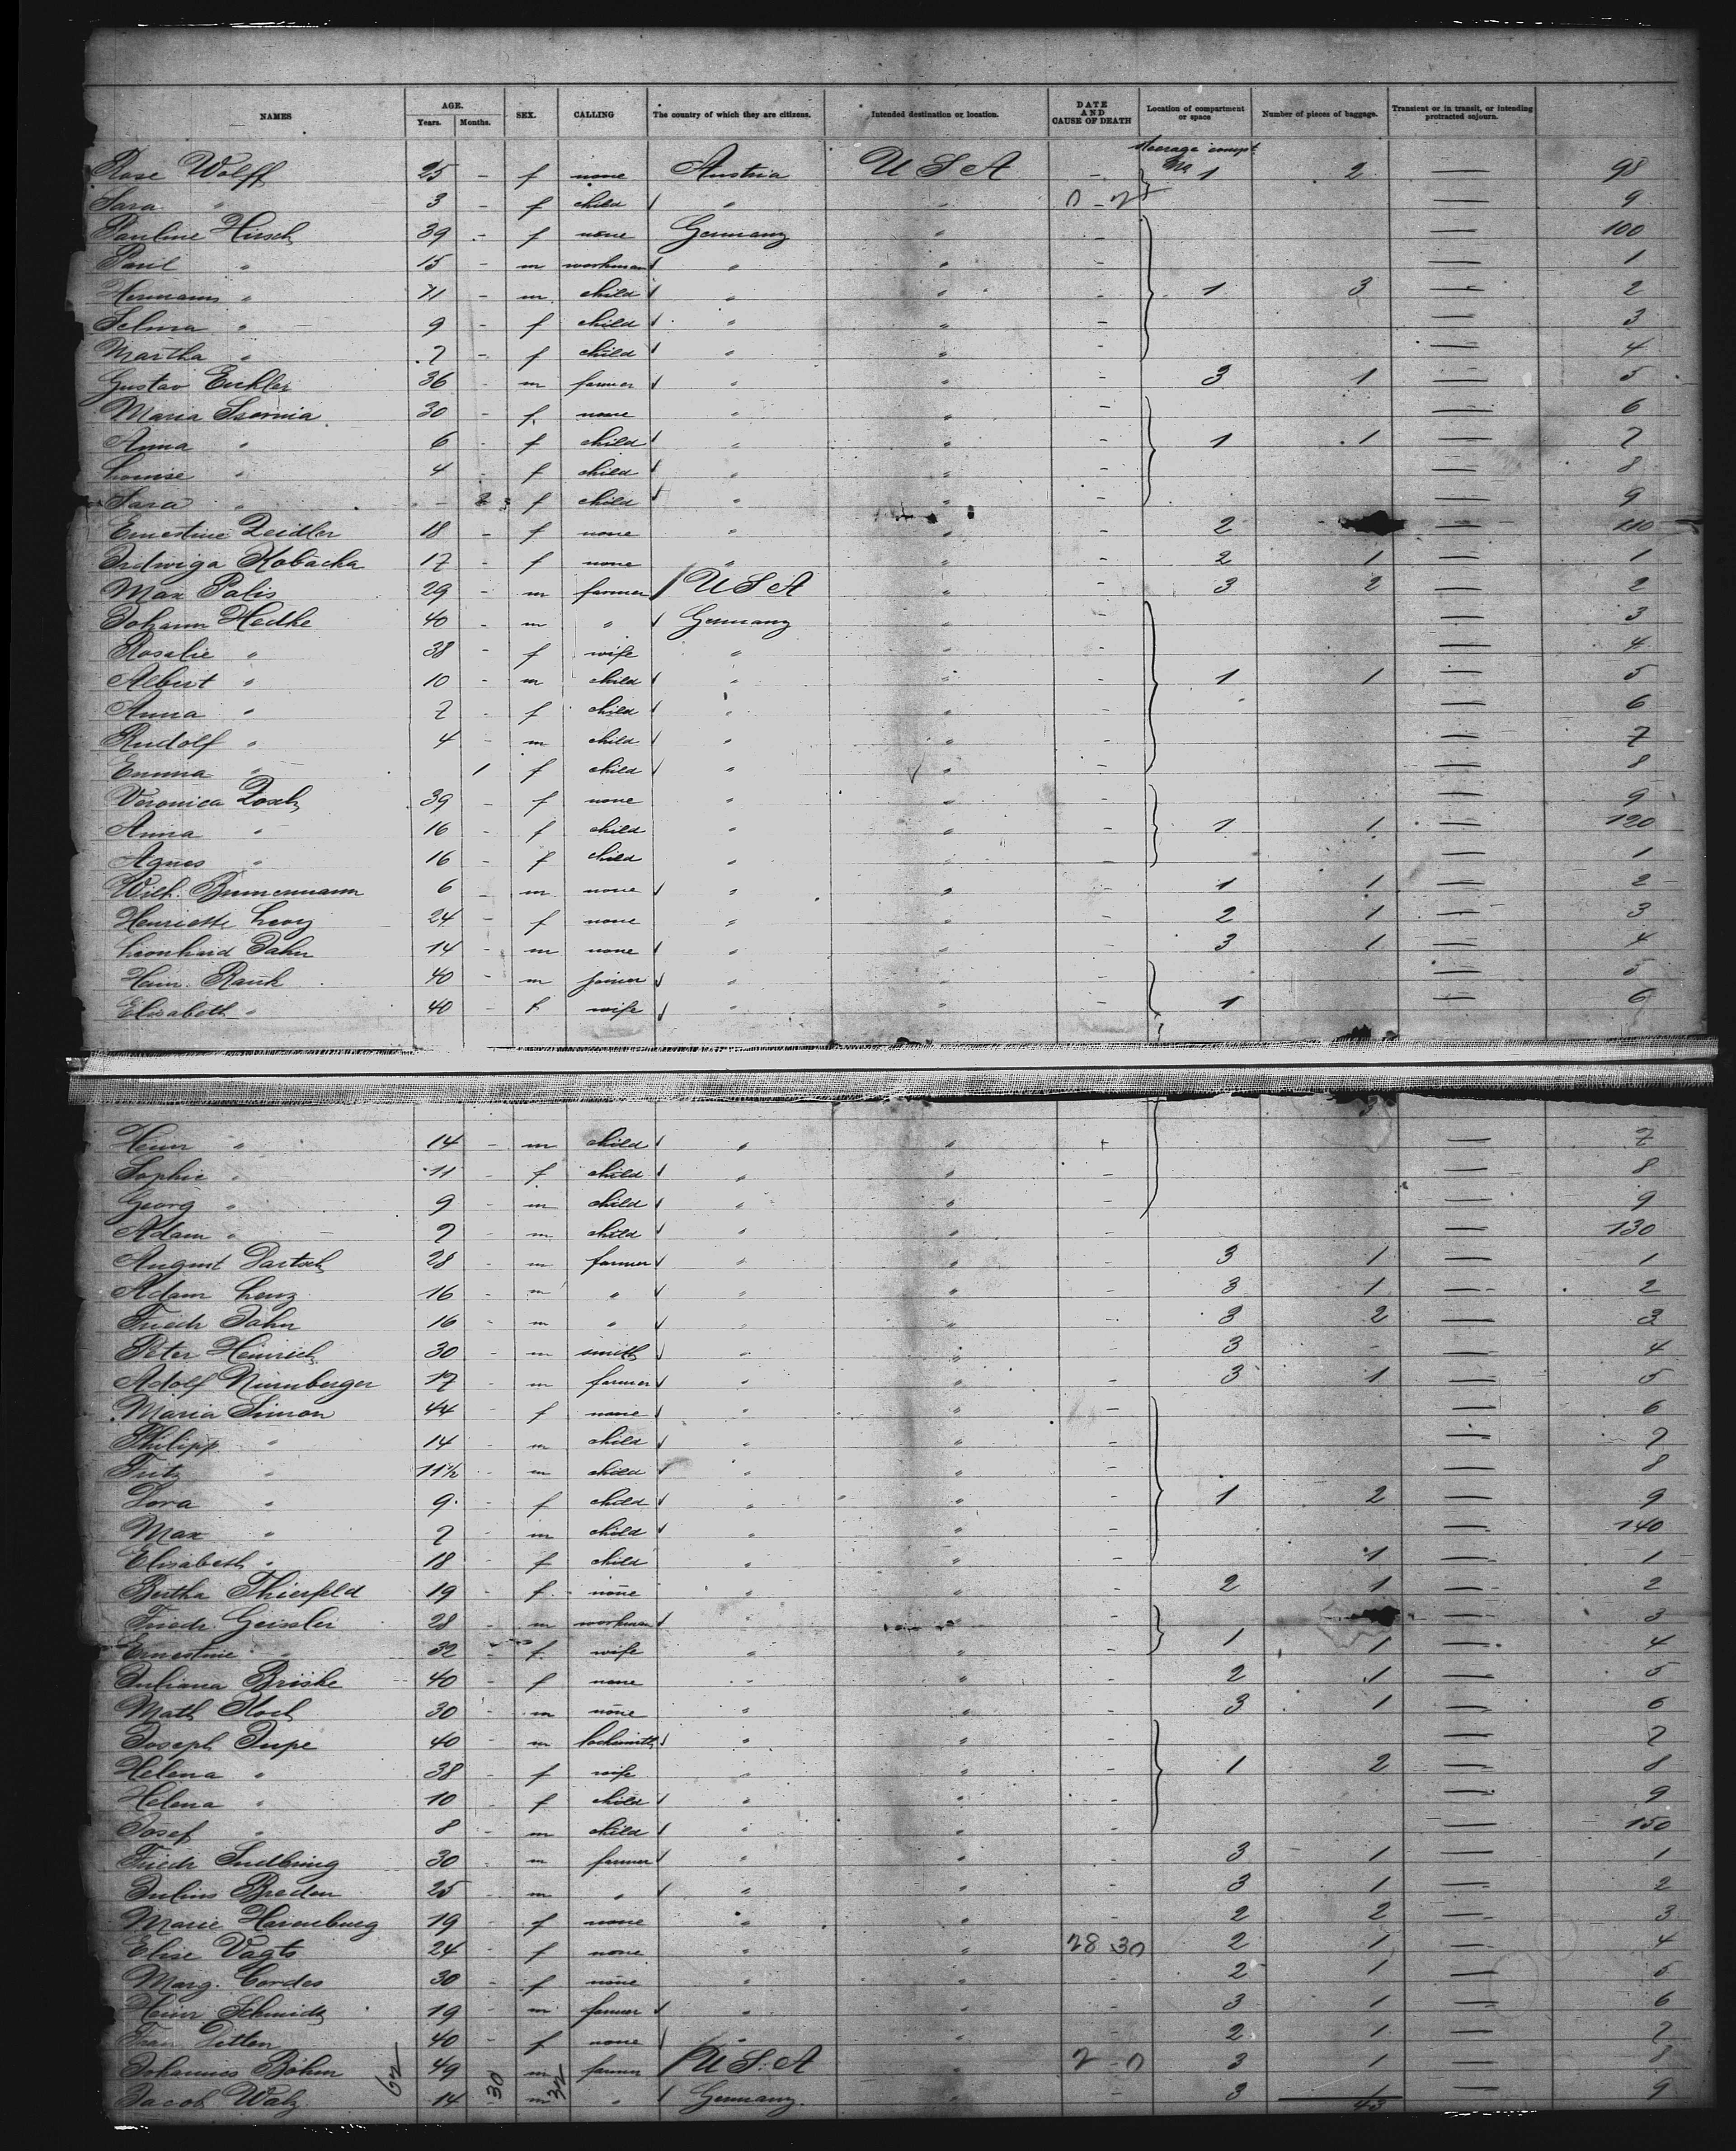 NAMES AGE. Years. Months. SEX. CALLING The country of which they are citizens. Intended destination or location. DATE AND CAUSE OF DEATH Location of compartment or space Number of pieces of baggage. Transient or in transit, or intending protracted sojourn.
Steerage compt.
Rose Wolff 25 - f none Austria U S A - No 1 2 — 98
Sara " 3 - f child " " — 9
Pauline Hirsch 39 - f none Germany " - — 100
Paul " 15 - m workman " " - — 1
Hermann " 11 - m child " " - 1 3 — 2
Selma " 9 - f child " " - — 3
Martha " 7 - f child " " - — 4
Gustav Eichler 36 - m farmer " " - 3 1 — 5
Maria 30 - f none " " - — 6
Anna " 6 - f child " " - 1 1 — 7
Louise " 4 - f child " " - — 8
Sara " - f child " " - — 9
Ernestine Zeidler 18 - f none " " - 2 — 110
Hedwiga Kobacka 17 - f none " " - 2 1 — 1
Max Palis 29 - m farmer U S A " - 3 2 — 2
Johann Hedke 40 - m " Germany " - — 3
Rosalie " 38 - f wife " " - — 4
Albert " 10 - m child " " - 1 1 — 5
Anna " 7 - f child " " - — 6
Rudolf " 4 - m child " " - — 7
Emma " 1 f child " " - — 8
Veronica Zosch 39 - f none " " - — 9
Anna " 16 - f child " " - 1 1 — 120
Agnes " 16 - f child " " - — 1
Wilh. Brunemann 6 - m none " " - 1 1 — 2
Henriette Levy 24 - f none " " - 2 1 — 3
Leonhard Jahn 14 - m none " " - 3 1 — 4
Heinr. Rauh 40 - m joiner " " - — 5
Elisabeth " 40 - f wife " " - 1 — 6
3
Heinr " 14 - m child " " - — 7
Sophie " 11 - f child " " - — 8
Georg " 9 - m child " " - — 9
Adam " 7 - m child " " - — 130
August Dartsch 28 - m farmer " " - 3 1 — 1
Adam Lenz 16 - m " " " - 3 1 — 2
Friedr Jahn 16 - m " " " - 3 2 — 3
Peter Heinrich 30 - m smith " " - 3 - — 4
Adolf Nürnberger 17 - m farmer " " - 3 1 — 5
Maria Simon 44 - f none " " - — 6
Philipp " 14 - m child " " - — 7
Fritz " 11½ - m child " " - — 8
Dora " 9 - f child " " - 1 2 — 9
Max " 7 - m child " " - — 140
Elisabeth " 18 - f child " " - 1 — 1
Bertha Thierfeld 19 - f none " " - 2 1 — 2
Friedr. Geissler 28 - m workman " " - — 3
Ernestine " 32 - f wife " " - 1 1 — 4
Juliana Briske 40 - f none " " - 2 1 — 5
Math Koch 30 - m none " " - 3 1 — 6
Joseph Jupe 40 - m locksmith " " - — 7
Helena " 38 - f wife " " - 1 2 — 8
Helena " 10 - f child " " - — 9
Josef " 8 - m child " " - — 150
Friedr 30 - m farmer " " - 3 1 — 1
Julius Breden 25 - m " " " - 3 1 — 2
Marie Harenburg 19 - f none " " - 2 2 — 3
Elise Vagts 24 - f none " " 28 30 2 1 — 4
Marg. Cordes 30 - f none " " - 2 1 — 5
Heinr Schmidt 19 - m farmer " " - 3 1 — 6
40 - f none " " - 2 1 — 7
Johannes Böhm 49 - m farmer U. S. A " 2 - 0 3 1 — 8
Jacob Walz 14 - m " Germany. - 3 1 — 9
62 30 32 43